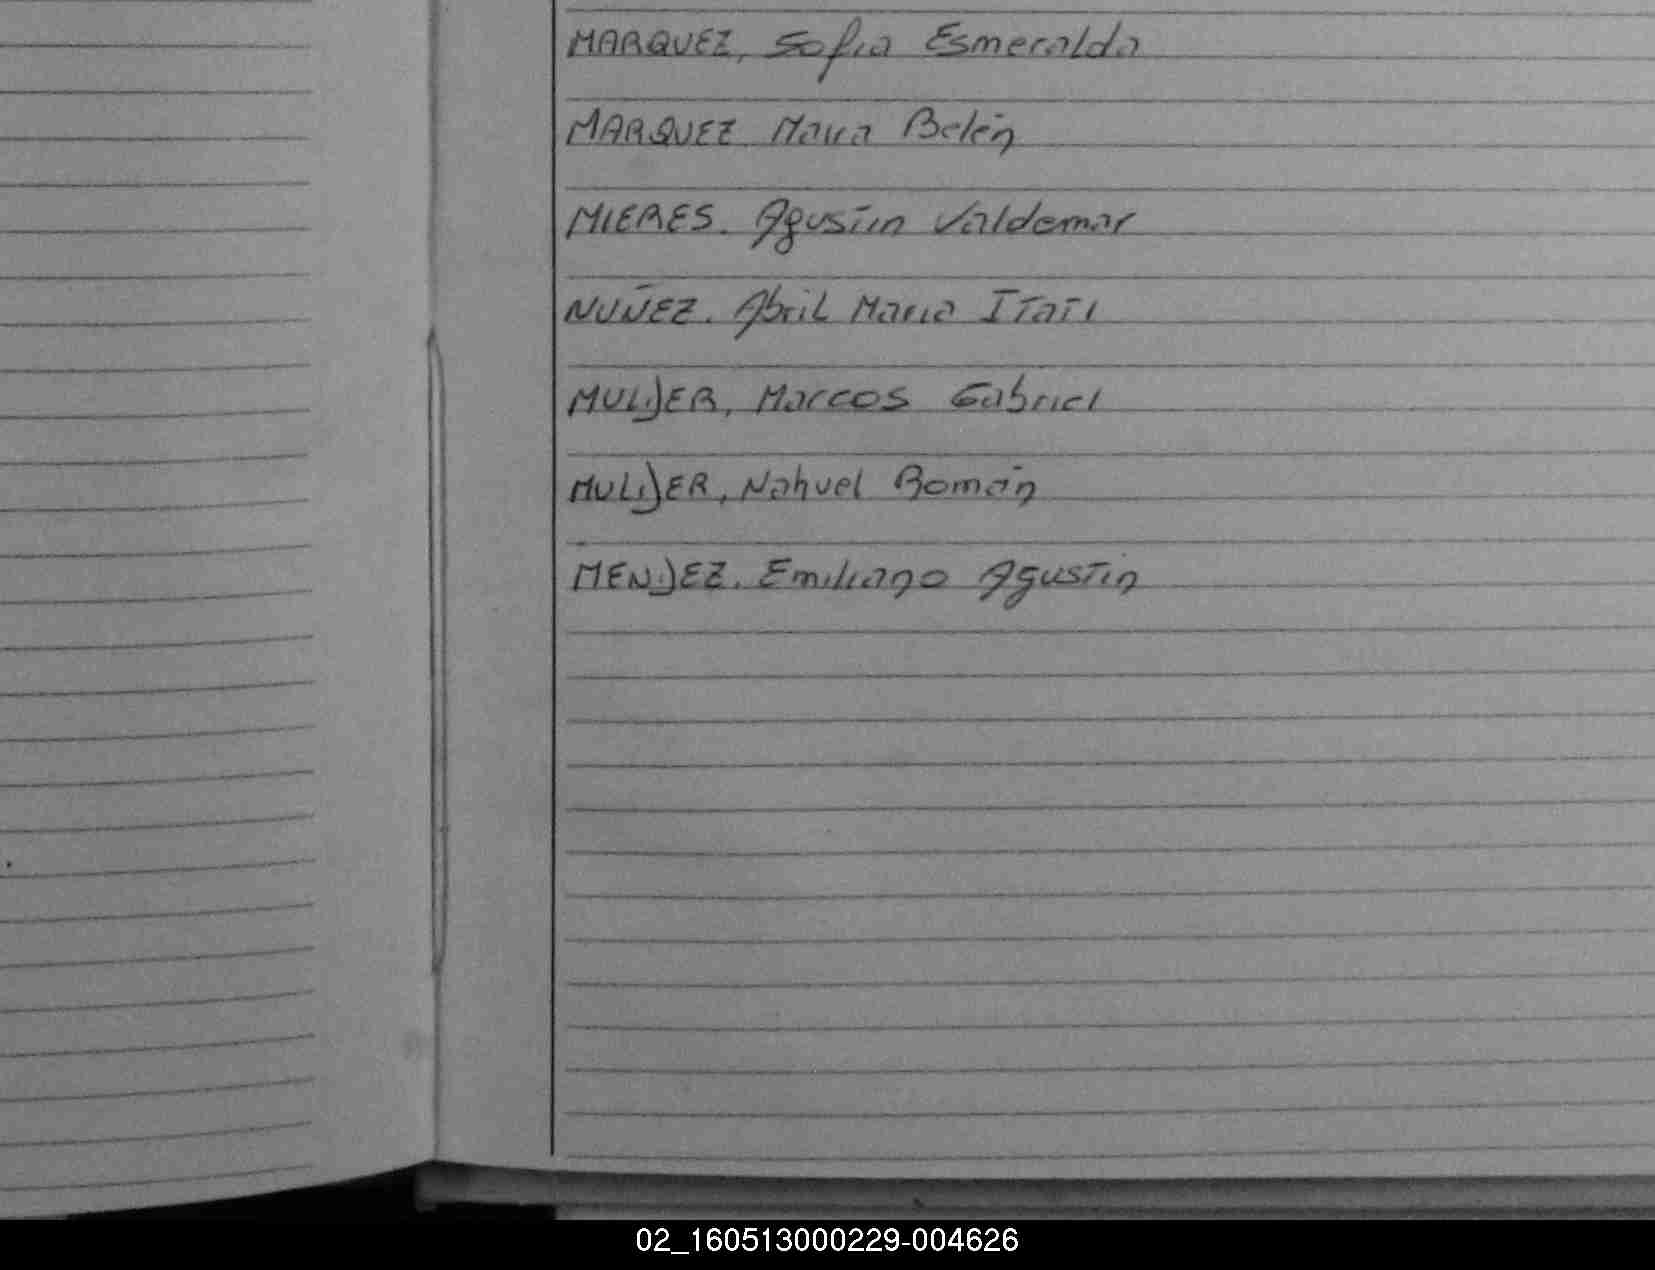 MARQUEZ, Sofia Esmeralda
MARQUEZ Maria Belén
MIERES. Agustin Valdemar
NUÑEZ. Abril Maria Itati
MULDER, Marcos Gabriel
MULDER, Nahuel Román
MENDEZ. Emiliano Agustin
02_160513000229-004626